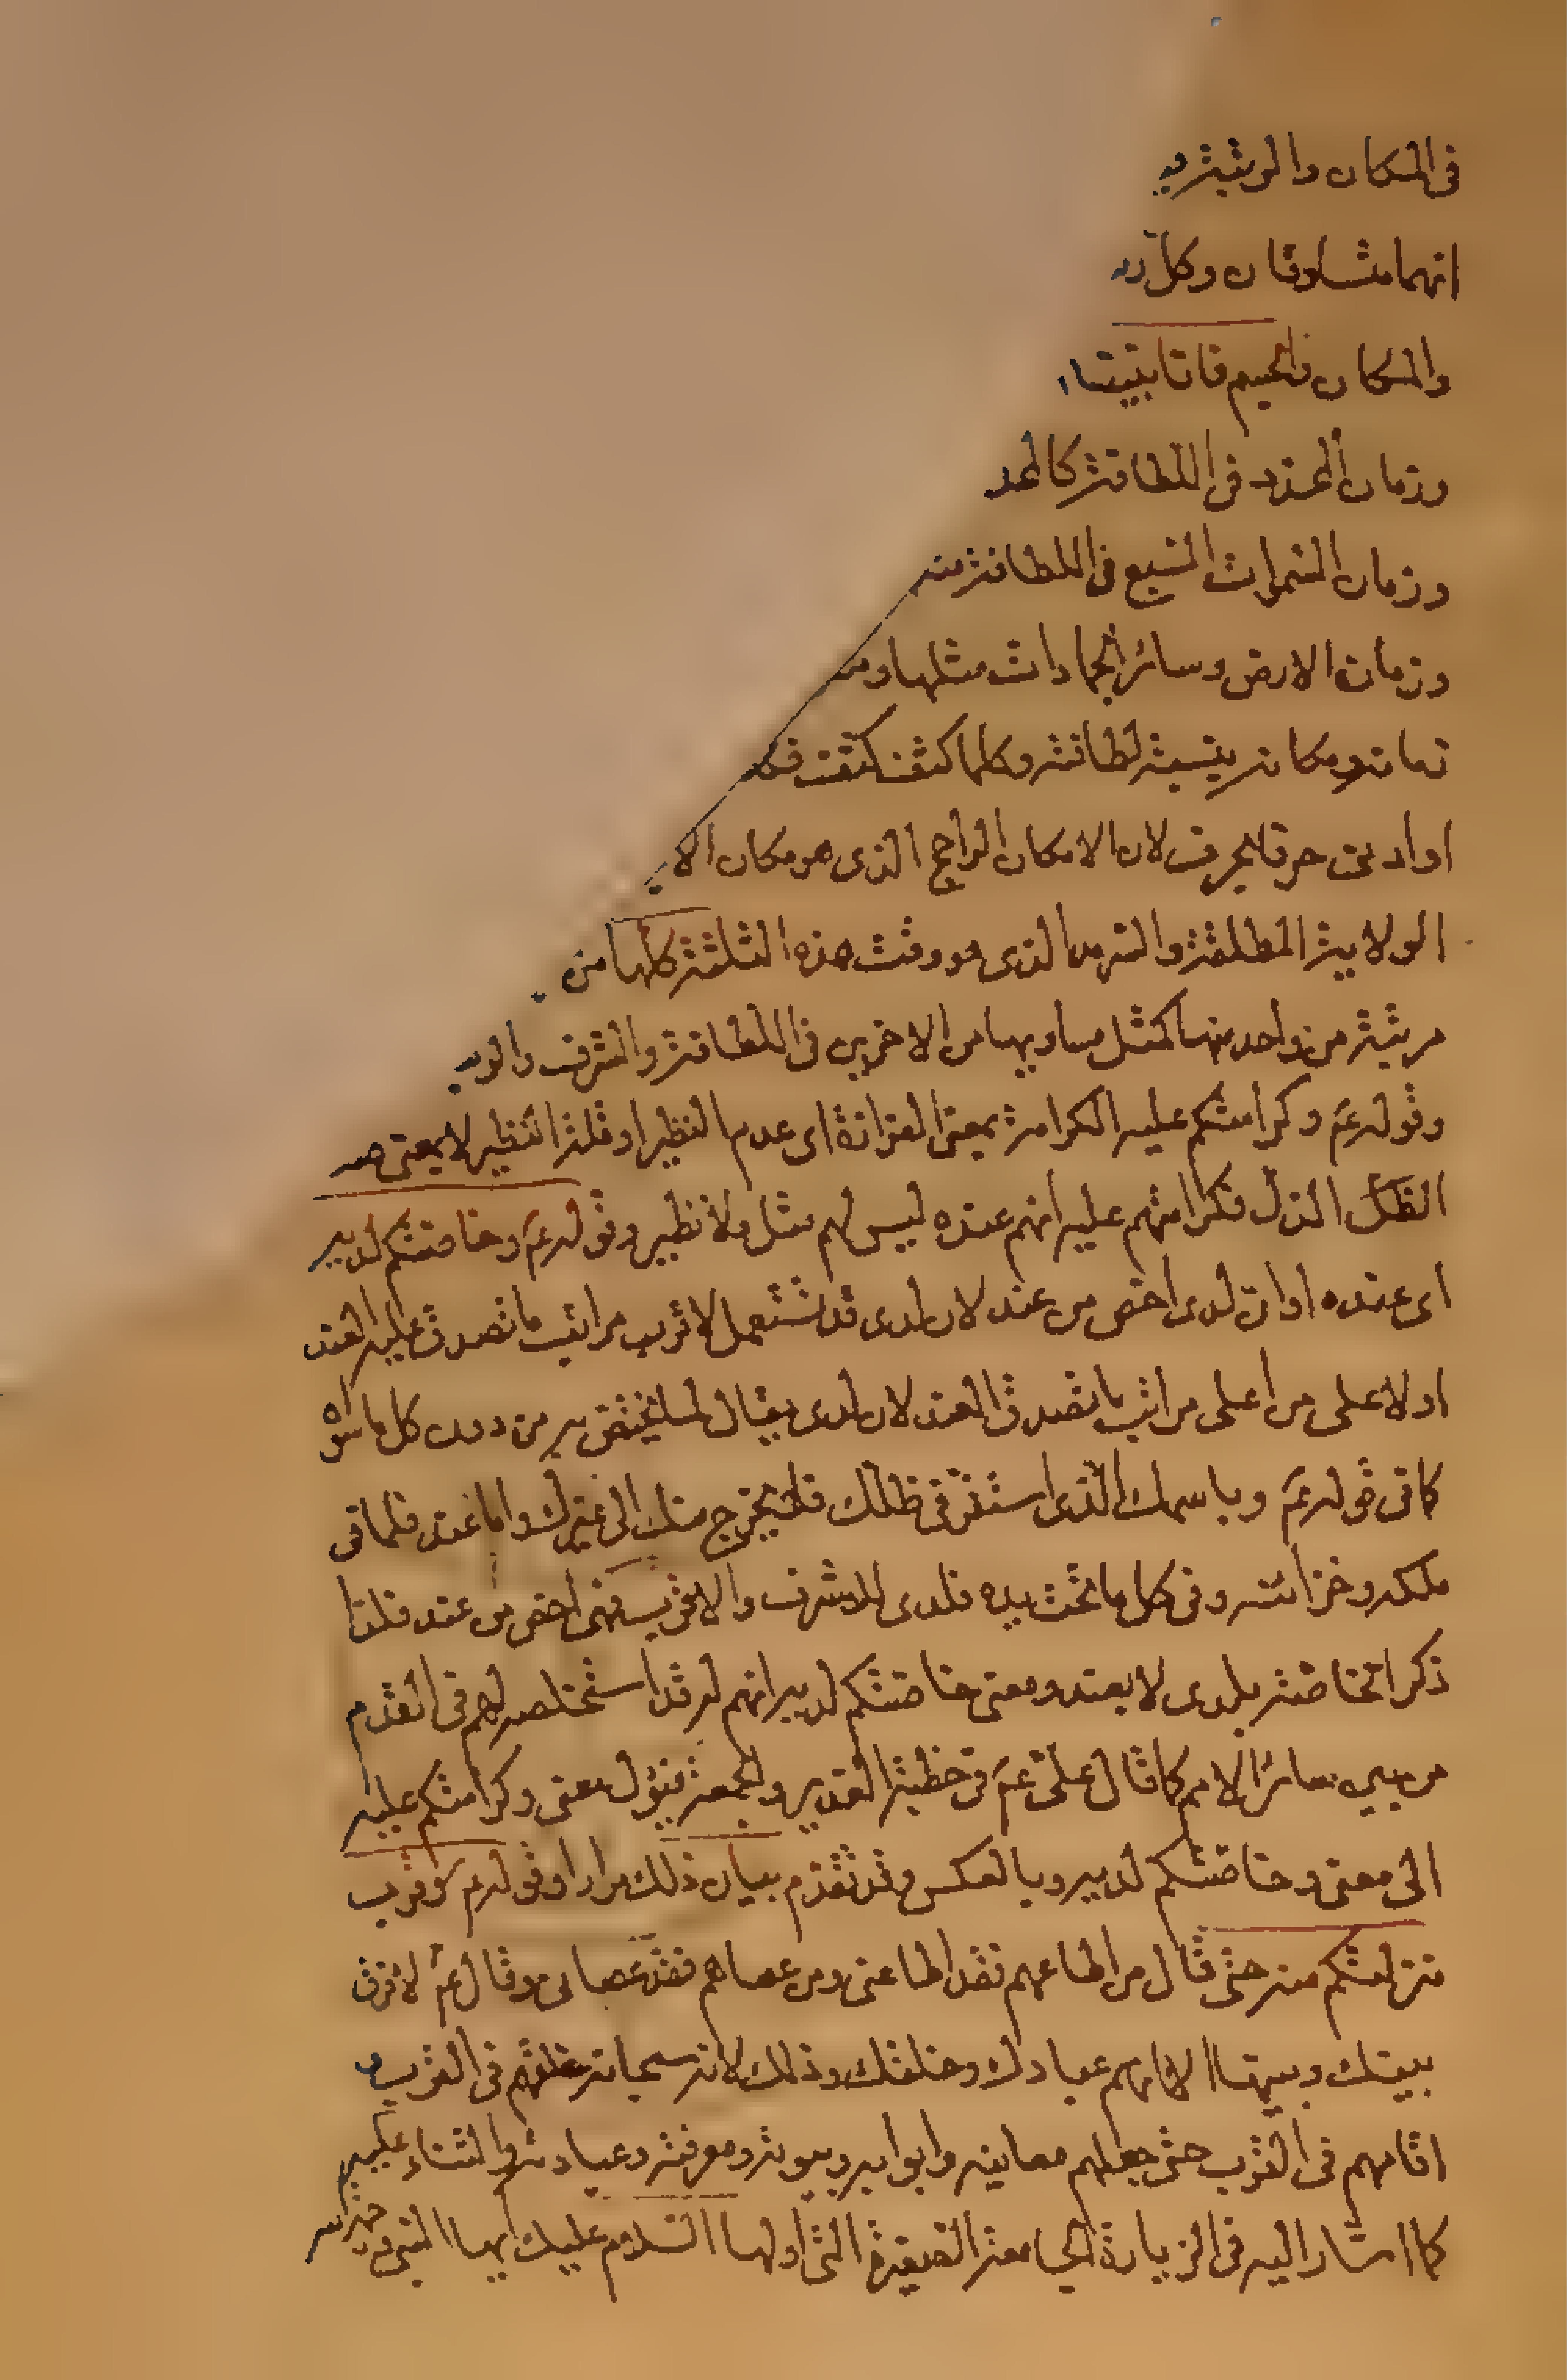 في المكان والرتبة
انهما متساوقان وكل
والمكان فالجسم
وزمان المحدد في اللطافة
وزمان السموات السبع في اللطافة
وزمان الارض وسائر الجمادات مثلها
زمانه ومكانه بنسبة لطافته وكلما كثف كثفت
او ادنى حرفا بحرف لان الامكان الراجح الذي هو مكان
الولاية المطلقة والسرمد الذي هو وقت هذه الثلثة كلها من
مرتبة من واحد منها كمثل مساويها من الاخرين في اللطافة والشرف
وقوله عم وكرامتكم عليه الكرامة بمعنى العزازة اي عدم النظير او قلة النظير لا بمعنى ضد
الذل فكرامتهم عليه انهم عنده ليس لهم مثل ولا نظير وقوله عم وخاصتكم لديه
اى عنده او ان لدى اخص من عند لان لدى قد تستعمل لاقرب مراتب ما تصدق عليه العند
او لاعلى من اعلى مراتب ما تصدق العند لان لدى يقال لمن يختص به من دون كل ما سواه
كما في قوله عم وباسمك الذي استقر في ظلك فلا يخرج منك الى غيرك واما عند فلما في
ملكه وخزائنه وفي كل ما تحت يده فلدى للاشرف والاقرب فهي اخص من عند فلذا
ذكر الخاصة بلدى لا بعند ومعنى خاصتكم لديه انهم له قد استخلصهم في القدم
من بين سائر الامم كما قال على عم في خطبة الغدير والجمعة فيؤل معنى وكرامتكم عليه
الى معنى وخاصتكم لديه وبالعكس وقد تقدم بيان ذلك مرارا وقوله عم وقرب
منزلتكم منه حتى قال من اطاعهم فقد اطاعنى ومن عصاهم فقد عصانى وقال عم لا فرق
بينك وبينها الا انهم عبادك وخلقك وذلك لانه سبحانه خلقهم في القرب
اقامهم في القرب حتى جعلهم معانيه وابوابه وبيوته ومعرفته وعبادته والثناء عليه
كما اشار اليه في الزيارة الجامعة الصغيرة التى اولها السلام عليك ايها النبي